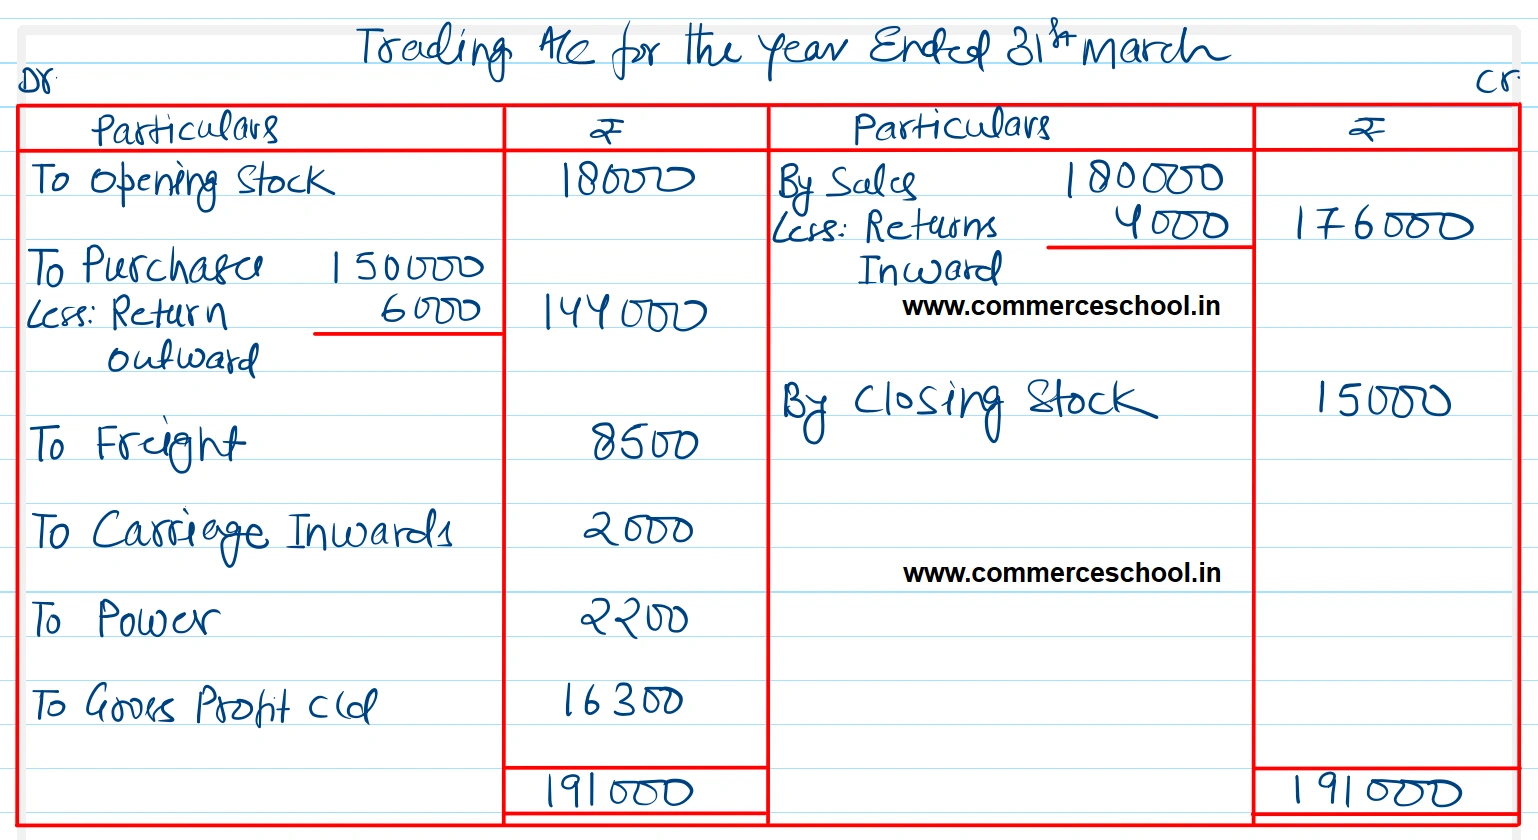 Trading A/c for the year Ended 31st March
Dr. Cr.
Particulars ₹ Particulars ₹
To Opening Stock 18000 By Sales 180000
Less: Returns 4000 176000
To Purchase 150000 Inward
www.commerceschool.in
Less: Return 6000 144000
outward
By Closing Stock 15000
To Freight 8500
To Carriage Inwards 2000
www.commerceschool.in
To Power 2200
To Gross Profit c/d 16300
191000 191000